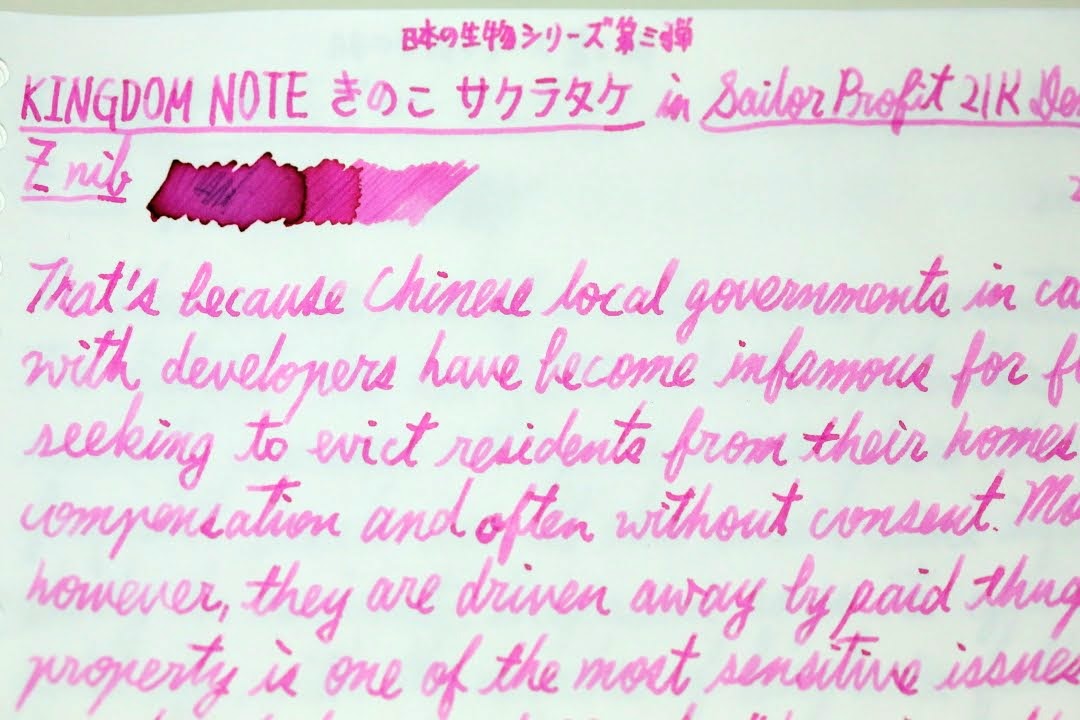 日本の生物シリーズ第三弾
KINGDOM NOTE きのこ サクラタケ in Sailor Profit 21K
Z nib
That's because Chinese local governments in
with developers have become infamous for
seeking to evict residents from their homes
compensation and often without consent.
however, they are driven away by paid
property is one of the most sensitive issues